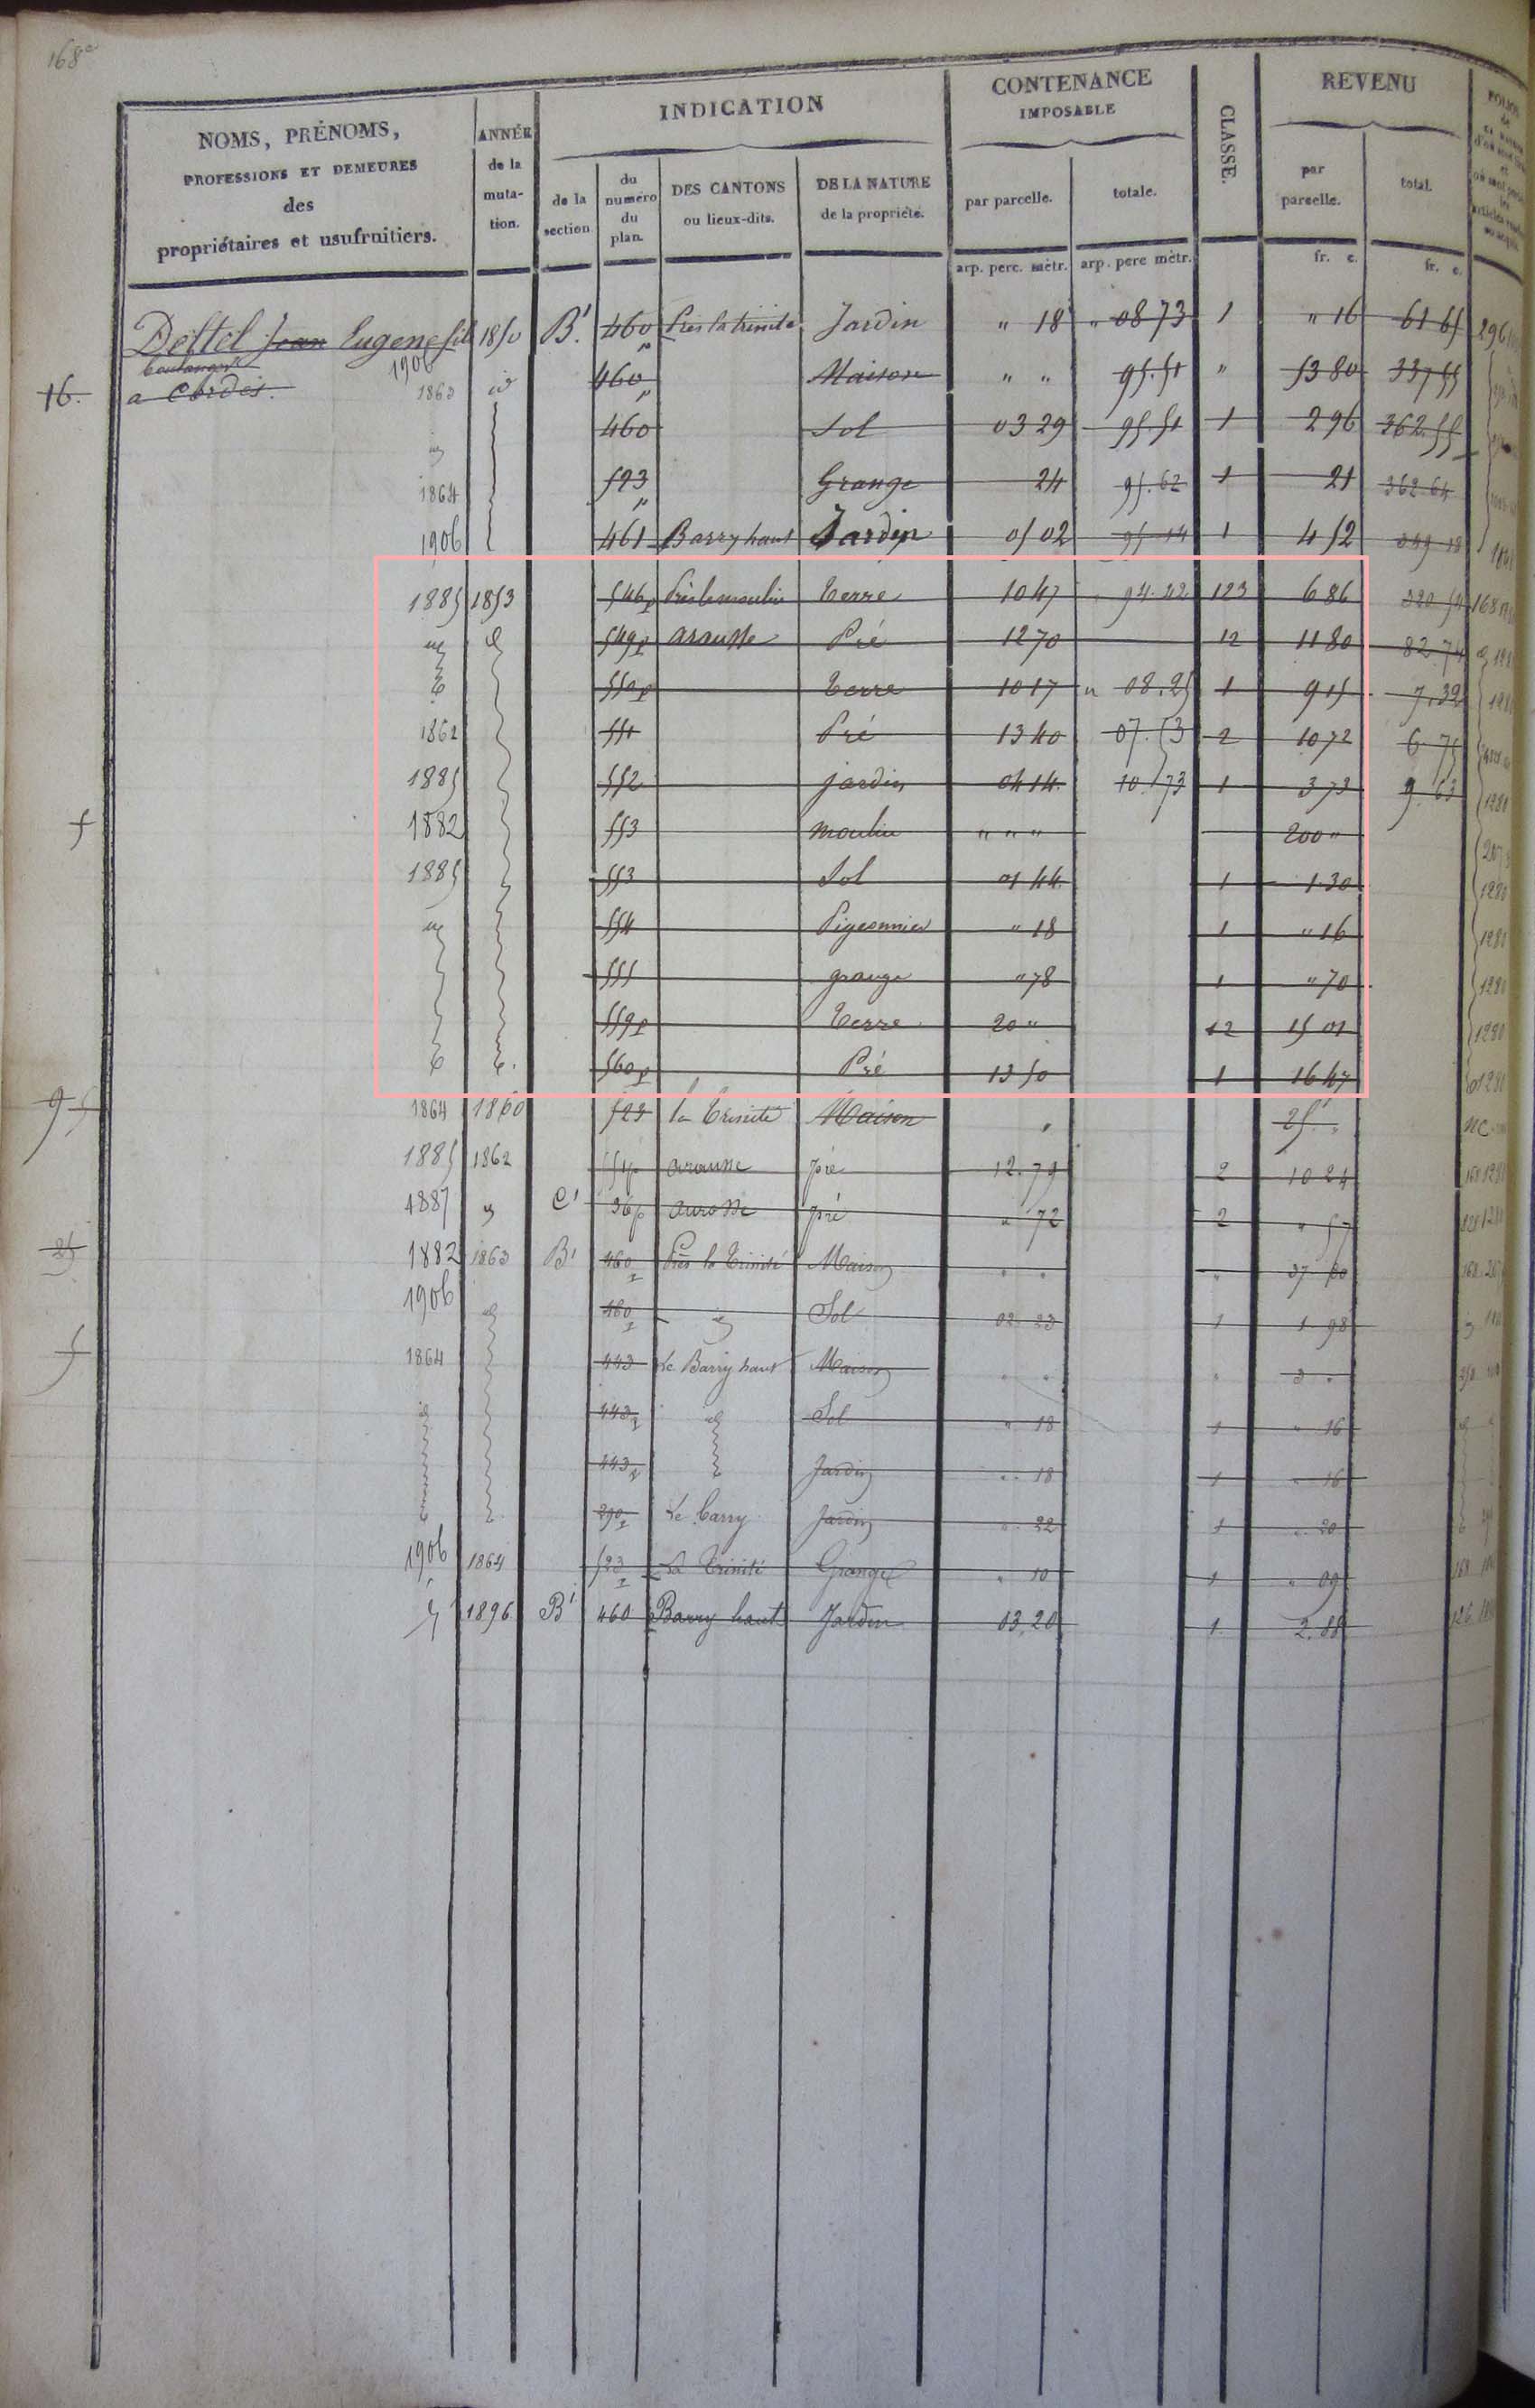 168e
NOMS, PRÉNOMS,
PROFESSIONS ET DEMEURES
des
propriétaires et usufruitiers.
ANNÉE
de la
muta-
tion.
INDICATION
de la
section
du
numéro
du
plan.
DES CANTONS
ou lieux-dits.
DE LA NATURE
de la propriété.
CONTENANCE
IMPOSABLE
par parcelle.
totale.
arp. perc. mètr.
arp. perc mètr.
CLASSE.
REVENU
par
parcelle.
total.
fr. c.
fr. c.
Deltel Jean Eugene fils 1850 B1. 460p Près la trinité Jardin " 18 " 08 73 1 " 16 61 65 296
boulanger 1906
16. a Cordes. 1863 id 460p Maison " " 95.51 " 53 80 337 55
460 Sol 03 29 95.51 1 2 96 362.55
1864 523p Grange 24 95.62 1 21 362.64
1906 461 Barry haut Jardin 05 02 95 14 1 4 52
1885 1853 546p Près le moulin Terre 10 47 94.22 123 6 86 320 54 168
id id 549p arausse Pré 12 70 12 11 80 82.74
550p Terre 10 17 " 08.25 1 9 15 7.32
1862 551 Pré 13 40 07.53 2 10 72 6 75
1885 552 jardin 04 14 10.73 1 3 73 9 63
1882 553 moulin " " " 200 "
1885 553 Sol 01 44 1 1 30
id 554 Pigeonnier " 18 1 " 16
555 grange " 78 1 " 70
559p Terre 20 " 12 15 01
560p Pré 13 50 1 16 47
1864 1860 523 la Trinité Maison 25 "
1885 1862 551p arausse pré 12.79 2 10 24
1887 id C1 36p aurosse pré " 72 2 " 57
25 1882 1863 B1 460p Près la Trinité Maison " " " 37 80
1906 id 460p id Sol 02 23 1 1 98
1864 443 Le Barry haut Maison " " " 3 "
id 443p id Sol " 18 1 " 16
443p Jardin " 18 1 " 16
290p Le Barry Jardin " 22 1 " 20
1906 1864 523p La Trinité Grange " 10 1 " 09
id 1896 B1 460 Barry haut Jardin 03.20 1 2.88